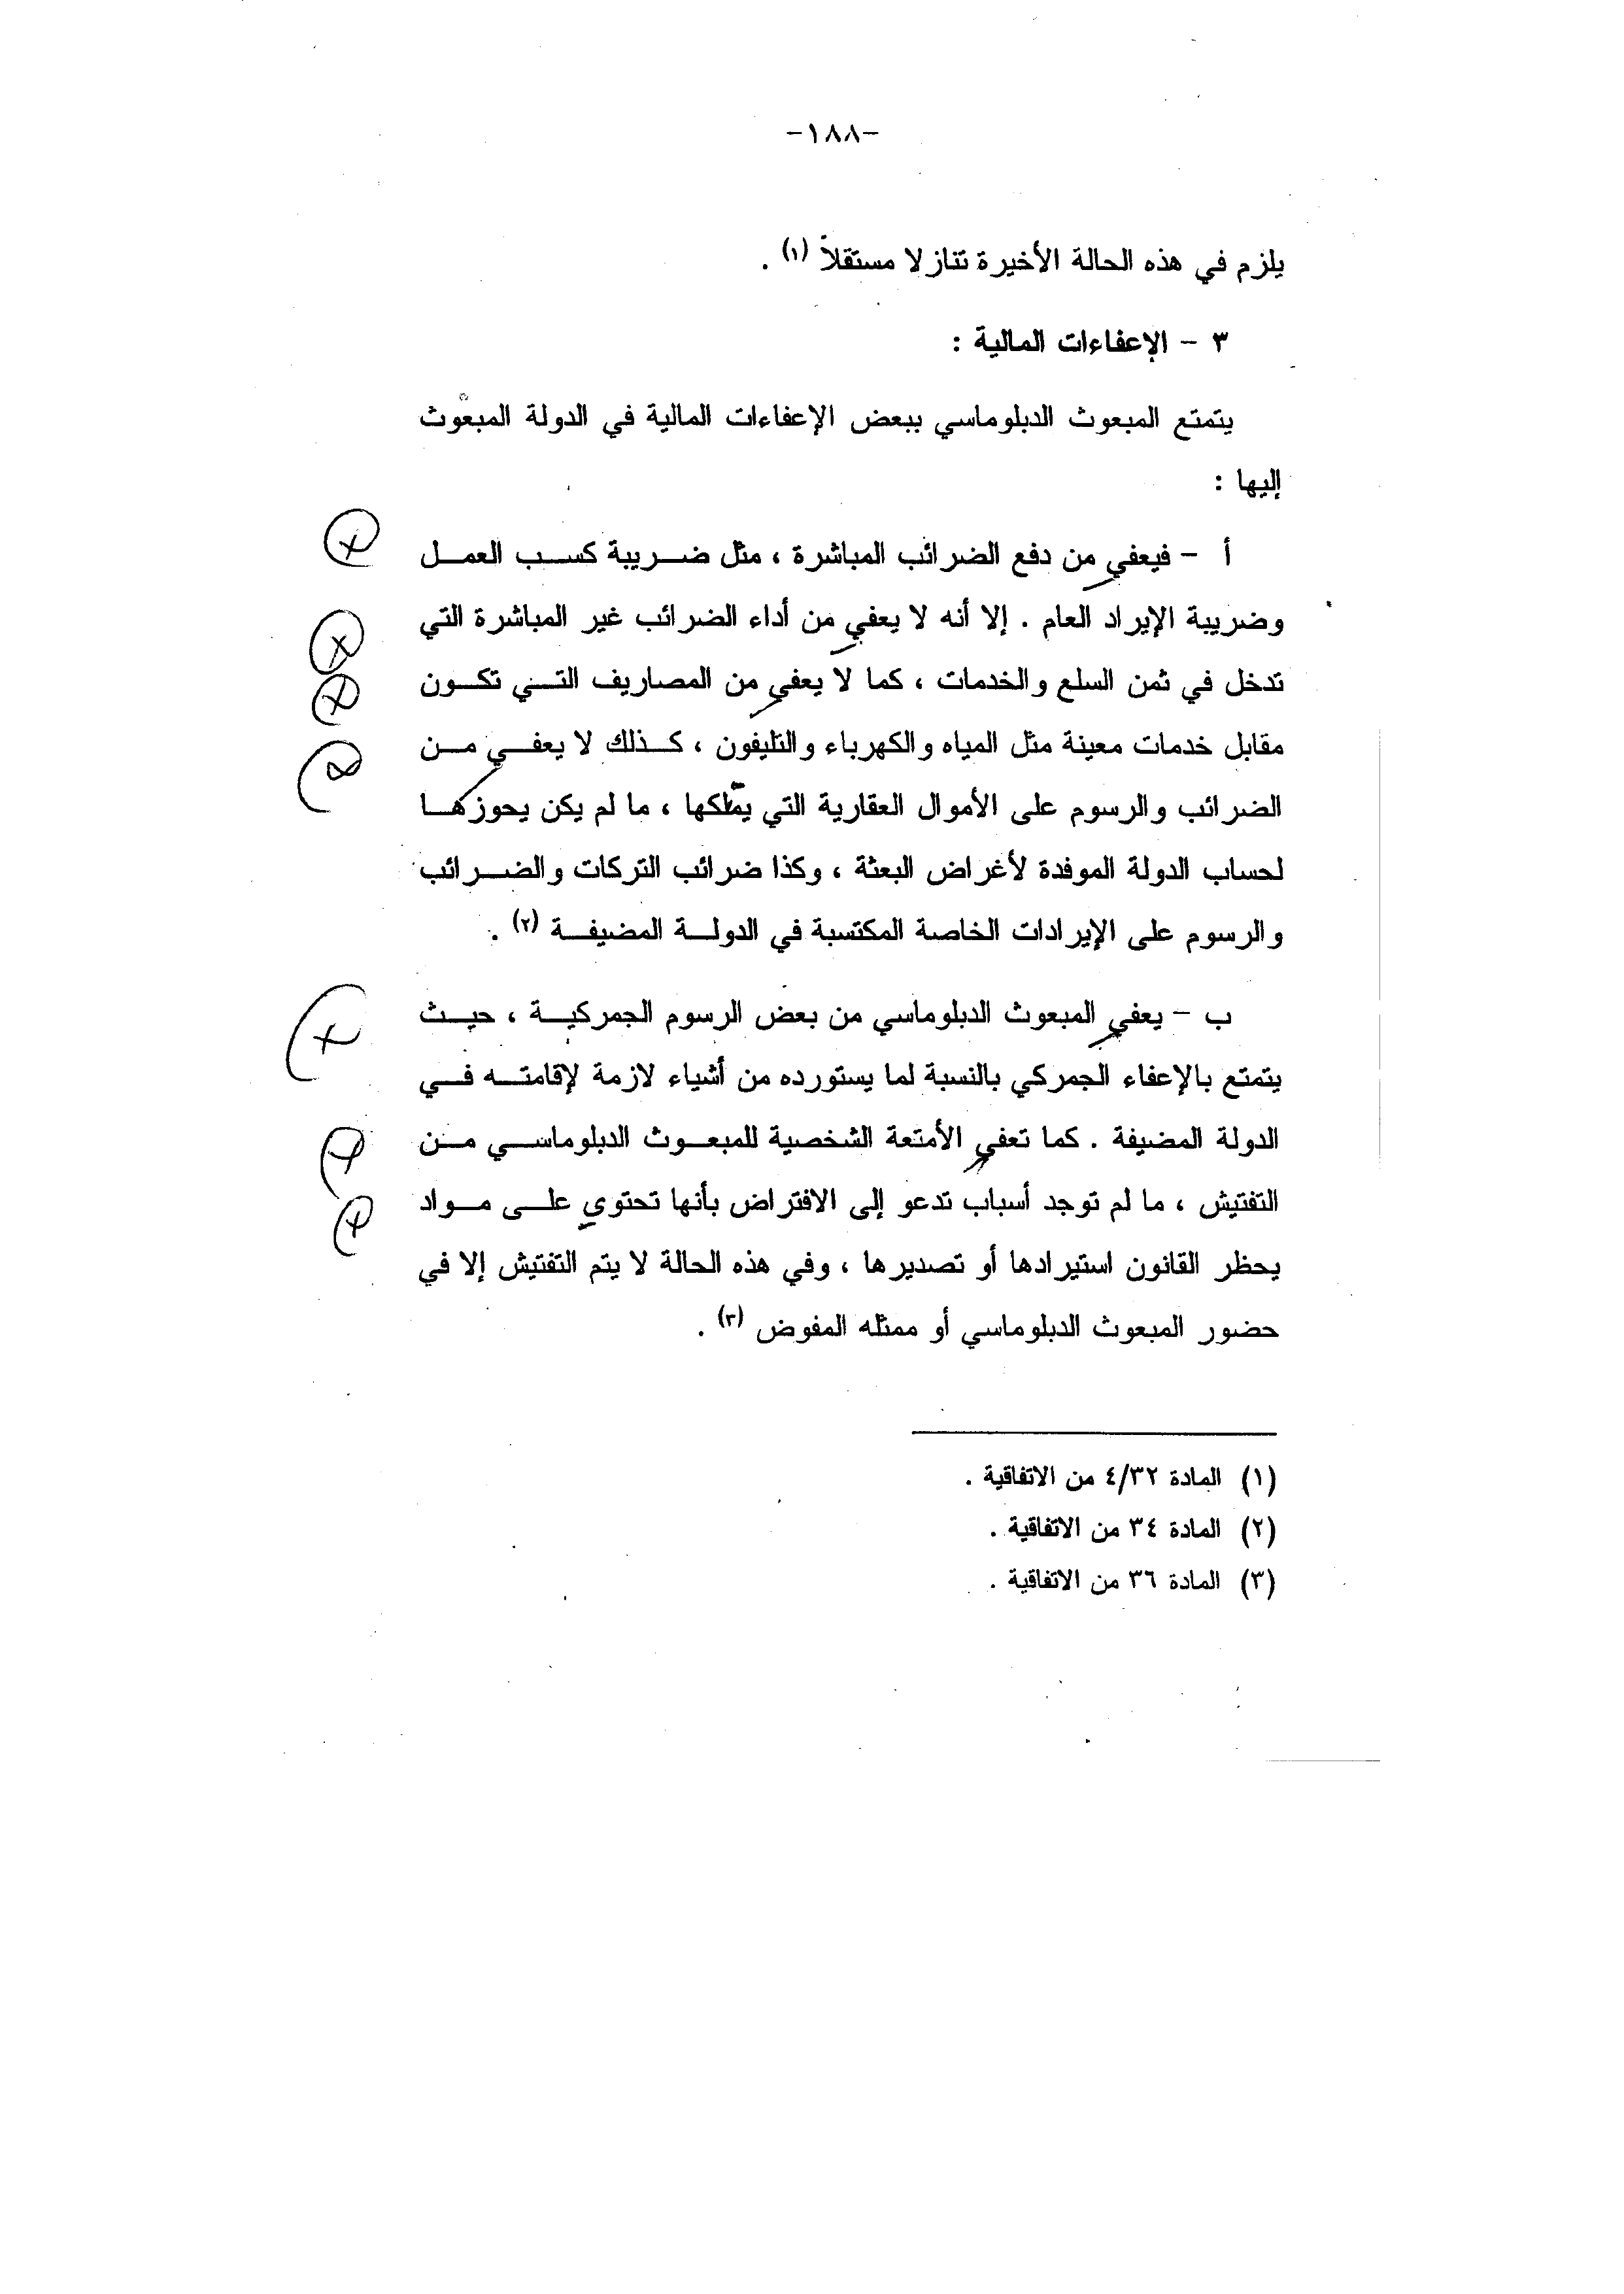 -١٨٨-
يلزم في هذه الحالة الأخيرة تنازلا مستقلاً (١) .
٣ - الإعفاءات المالية :
يتمتع المبعوث الدبلوماسي ببعض الإعفاءات المالية في الدولة المبعوث
إليها :
أ - فيعفي من دفع الضرائب المباشرة ، مثل ضريبة كسب العمل
وضريبة الإيراد العام . إلا أنه لا يعفي من أداء الضرائب غير المباشرة التي
تدخل في ثمن السلع والخدمات ، كما لا يعفي من المصاريف التي تكون
مقابل خدمات معينة مثل المياه والكهرباء والتليفون ، كذلك لا يعفي من
الضرائب والرسوم على الأموال العقارية التي يملكها ، ما لم يكن يحوزها
لحساب الدولة الموفدة لأغراض البعثة ، وكذا ضرائب التركات والضرائب
والرسوم على الإيرادات الخاصة المكتسبة في الدولة المضيفة (٢) .
ب - يعفي المبعوث الدبلوماسي من بعض الرسوم الجمركية ، حيث
يتمتع بالإعفاء الجمركي بالنسبة لما يستورده من أشياء لازمة لإقامته في
الدولة المضيفة . كما تعفي الأمتعة الشخصية للمبعوث الدبلوماسي من
التفتيش ، ما لم توجد أسباب تدعو إلى الافتراض بأنها تحتوي على مواد
يحظر القانون استيرادها أو تصديرها ، وفي هذه الحالة لا يتم التفتيش إلا في
حضور المبعوث الدبلوماسي أو ممثله المفوض (٣) .
(١) المادة ٤/٣٢ من الاتفاقية .
(٢) المادة ٣٤ من الاتفاقية .
(٣) المادة ٣٦ من الاتفاقية .